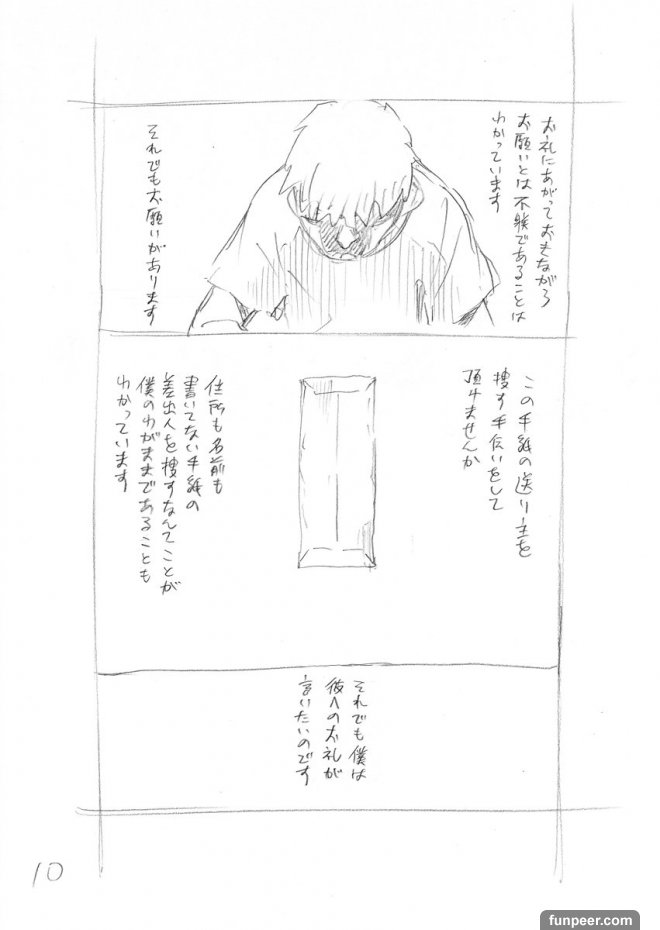 お礼にあがっておきながら
お願いとは不躾であることは
わかっています
それでもお願いがあります
この手紙の送り主を
捜す手伝いをして
頂けませんか
住所も名前も
書いてない手紙の
差出人を捜すなんてことが
僕のわがままであることも
わかっています
それでも僕は
彼へのお礼が
言いたいのです
10
funpeer.com